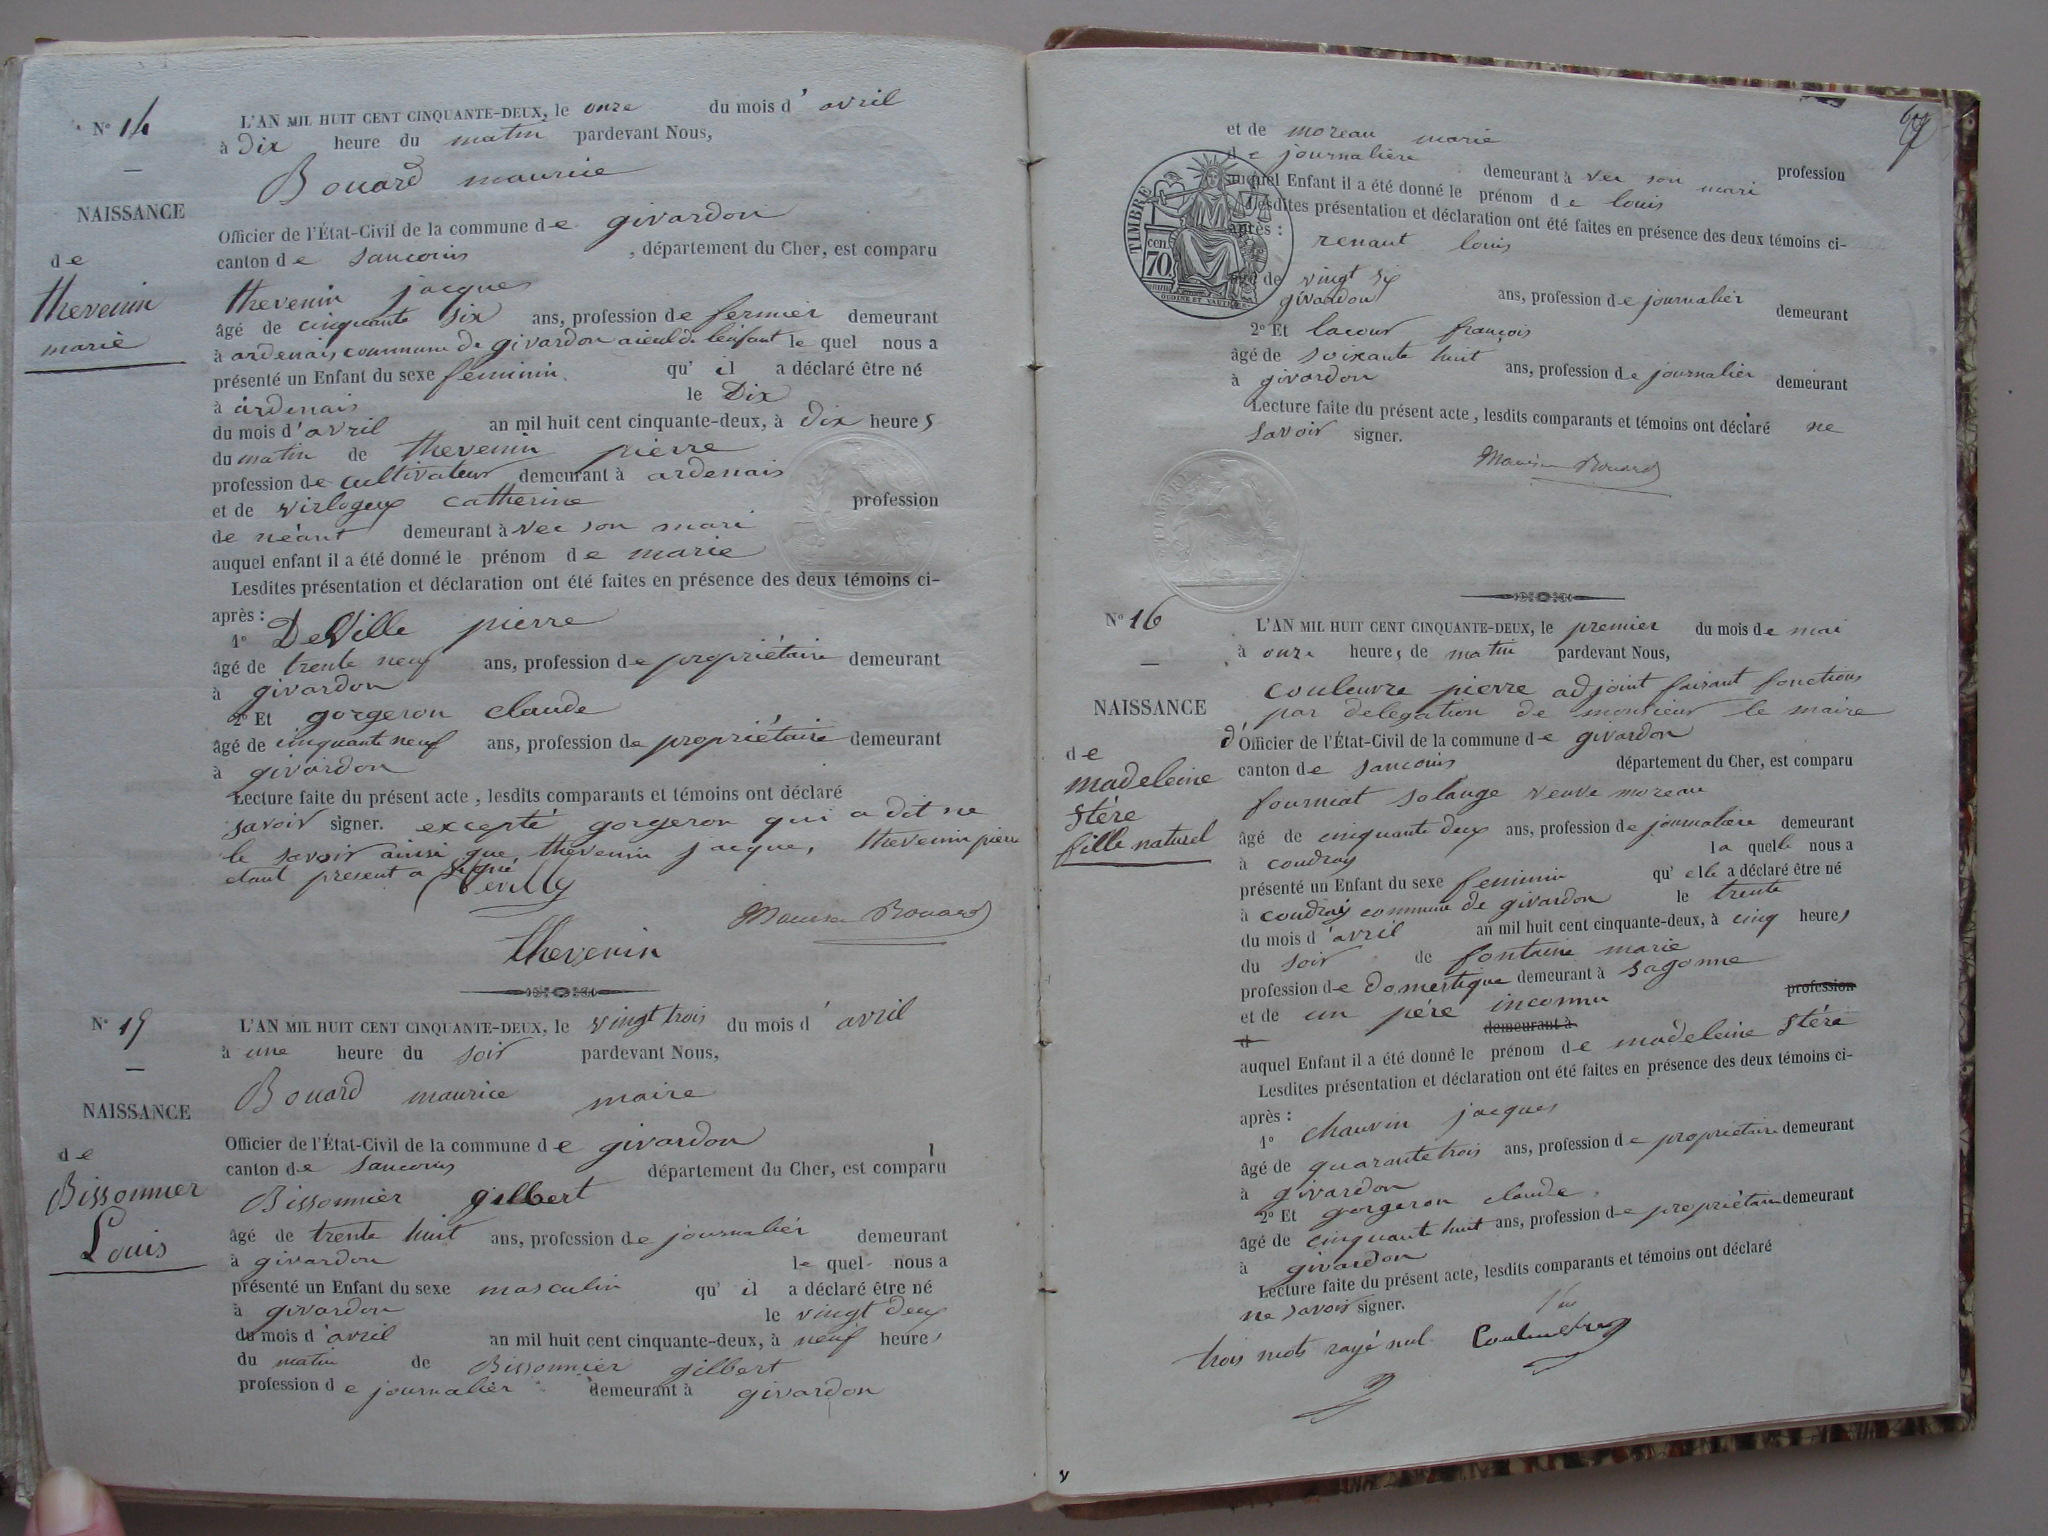 N° 14
L'AN MIL HUIT CENT CINQUANTE-DEUX, le onze du mois d'avril
à Dix heure du matin pardevant Nous,
Bouard maurice
NAISSANCE
Officier de l'État-Civil de la commune de givardon
de
canton de Sancoins , département du Cher, est comparu
thevenin
thevenin jacques
marie
âgé de cinquante six ans, profession de fermier demeurant
à ardenais commune de givardon aieul de l'enfant le quel nous a
présenté un Enfant du sexe feminin qu'il a déclaré être né
à ardenais le Dix
du mois d'avril an mil huit cent cinquante-deux, à dix heures
du matin de thevenin pierre
profession de cultivateur demeurant à ardenais
et de virlogeux catherine profession
de néant demeurant à vec son mari
auquel enfant il a été donné le prénom de marie
Lesdites présentation et déclaration ont été faites en présence des deux témoins ci-
après :
1° DeVille pierre
âgé de trente neuf ans, profession de propriétaire demeurant
à givardon
2° Et gorgeron claude
âgé de cinquante neuf ans, profession de propriétaire demeurant
à givardon
Lecture faite du présent acte, lesdits comparants et témoins ont déclaré
savoir signer. excepté gorgeron qui a dit ne
le savoir ainsi que thevenin jacque, thevenin pierre
etant present a signé
Maurice Bouard
thevenin
N° 15
L'AN MIL HUIT CENT CINQUANTE-DEUX, le vingt trois du mois d'avril
à une heure du soir pardevant Nous,
Bouard maurice maire
NAISSANCE
Officier de l'État-Civil de la commune de givardon
de
canton de Sancoins département du Cher, est comparu
Bissonnier
Louis
Bissonnier gilbert
âgé de trente huit ans, profession de journalier demeurant
à givardon le quel nous a
présenté un Enfant du sexe masculin qu'il a déclaré être né
à givardon le vingt deux
du mois d'avril an mil huit cent cinquante-deux, à neuf heures
du matin de Bissonnier gilbert
profession de journalier demeurant à givardon
et de moreau marie profession
de journalière demeurant à vec son mari
auquel Enfant il a été donné le prénom de louis
Lesdites présentation et déclaration ont été faites en présence des deux témoins ci-
après :
renaut louis
TIMBRE
70 cen
âgé de vingt six ans, profession de journalier demeurant
givardon
2° Et lacour françois
âgé de soixante huit ans, profession de journalier demeurant
à givardon
Lecture faite du présent acte, lesdits comparants et témoins ont déclaré ne
savoir signer.
Maurice Bouard
N° 16
L'AN MIL HUIT CENT CINQUANTE-DEUX, le premier du mois de mai
à onze heures de matin pardevant Nous,
couleuvre pierre adjoint faisant fonctions
par delegation de monsieur le maire
NAISSANCE
d'Officier de l'État-Civil de la commune de givardon
de
canton de Sancoins département du Cher, est comparu
madeleine
Stére
fille naturel
fourniat solange veuve moreau
âgé de cinquante deux ans, profession de journalière demeurant
à coudray la quelle nous a
présenté un Enfant du sexe feminin qu'elle a déclaré être né
à coudray commune de givardon le trente
du mois d'avril an mil huit cent cinquante-deux, à cinq heures
du soir de fontaine marie
profession de domestique demeurant à sagonne
et de un père inconnu profession
d demeurant à
auquel Enfant il a été donné le prénom de madeleine Stére
Lesdites présentation et déclaration ont été faites en présence des deux témoins ci-
après :
1° chauvin jacques
âgé de quarante trois ans, profession de propriétaire demeurant
à givardon
2° Et gorgeron claude
âgé de cinquante huit ans, profession de propriétaire demeurant
à givardon
Lecture faite du présent acte, lesdits comparants et témoins ont déclaré
ne savoir signer.
trois mots rayé nul